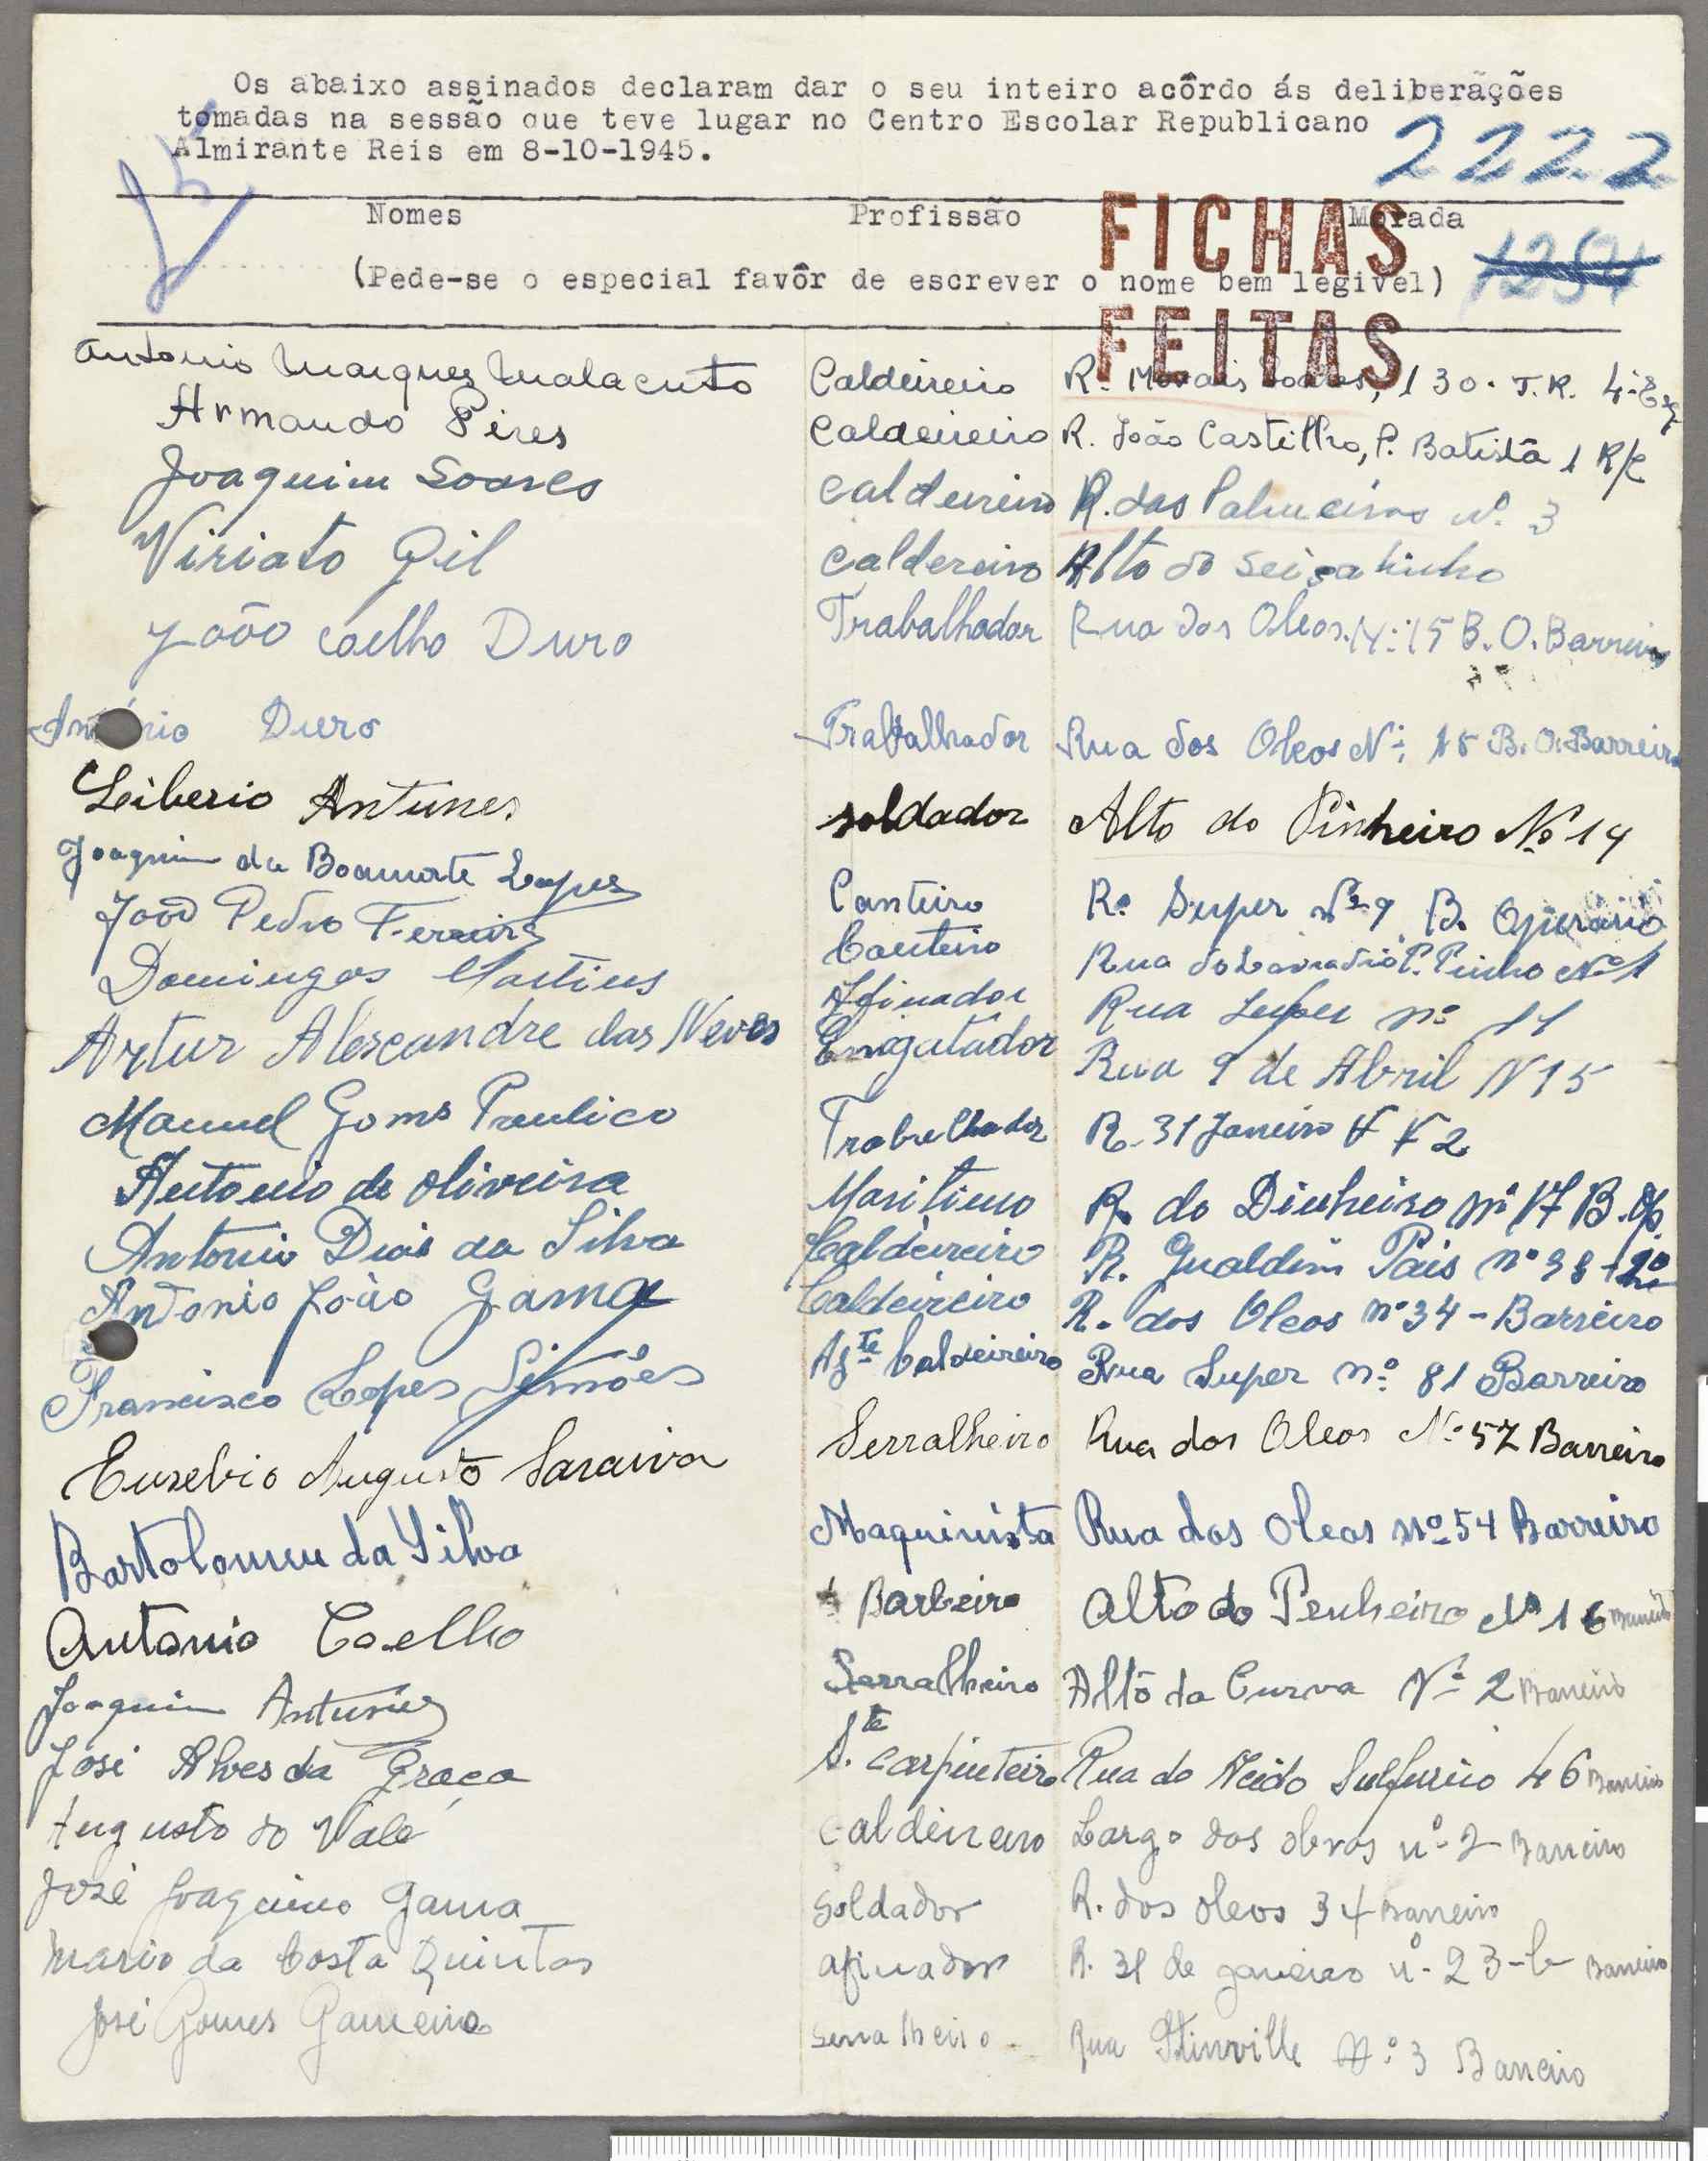 Os abaixo assinados declaram dar o seu inteiro acôrdo ás deliberações
tomadas na sessão que teve lugar no Centro Escolar Republicano
Almirante Reis em 8-10-1945.
2222
Nomes Profissão Morada
FICHAS
(Pede-se o especial favôr de escrever o nome bem legivel) 1251
FEITAS
Antonio Marques Malacuto Caldeireiro R. Morais Soares, 130. J.K. 4º Esq
Armando Peres Caldeireiro R. João Castilho, P. Batista 1 R/c
Joaquim Soares Caldeireiro R. das Palmeiras nº 3
Viriato Gil Caldereiro Alto do Seixalinho
João Coelho Duro Trabalhador Rua dos Oleos Nº 15 B. O. Barreiro
António Duro Trabalhador Rua dos Oleos Nº 15 B. O. Barreiro
Leiberio Antunes soldador Alto do Pinheiro Nº 14
Joaquim da Boamorte Lopes Canteiro Rª Super Nº 9 B. Operario
João Pedro Ferreira Canteiro Rua do Lavradio P. Pinho Nº 1
Domingos Martins Afinador Rua Super nº 11
Artur Alescandre das Neves Engatador Rua 9 de Abril N 15
Manuel Goms Trabelhador R. 31 Janeiro 2
Antonio de Oliveira Maritimo R. do Dinheiro nº 17 B. Op.
Antonio Dias da Silva Caldeireiro R. Gualdim Pais nº 38-1º
Antonio João Gama Caldeireiro R. dos Oleos nº 34 - Barreiro
Francisco Lopes Simões Ajte Caldeireiro Rua Super nº 81 Barreiro
Eusebio Augusto Saraiva Serralheiro Rua dos Oleos Nº 57 Barreiro
Bartolomeu da Silva Maquinista Rua dos Oleos nº 54 Barreiro
Antonio Coelho Barbeiro Alto do Penheiro Nº 16 Barreiro
Joaquim Antunes Serralheiro Alto da Curva Nº 2 Barreiro
José Alves da Graça S.te Carpinteiro Rua do Acido Sulfurico 46 Barreiro
Augusto do Vale Caldeireiro Largo das obras nº 2 Barreiro
José Joaquim Gama Soldador R. dos oleos 34 Barreiro
Mario da Costa Quintas afinador R. 31 de janeiro nº 23-b Barreiro
José Gomes Gameiro Serralheiro Rua Stinville Nº 3 Barreiro